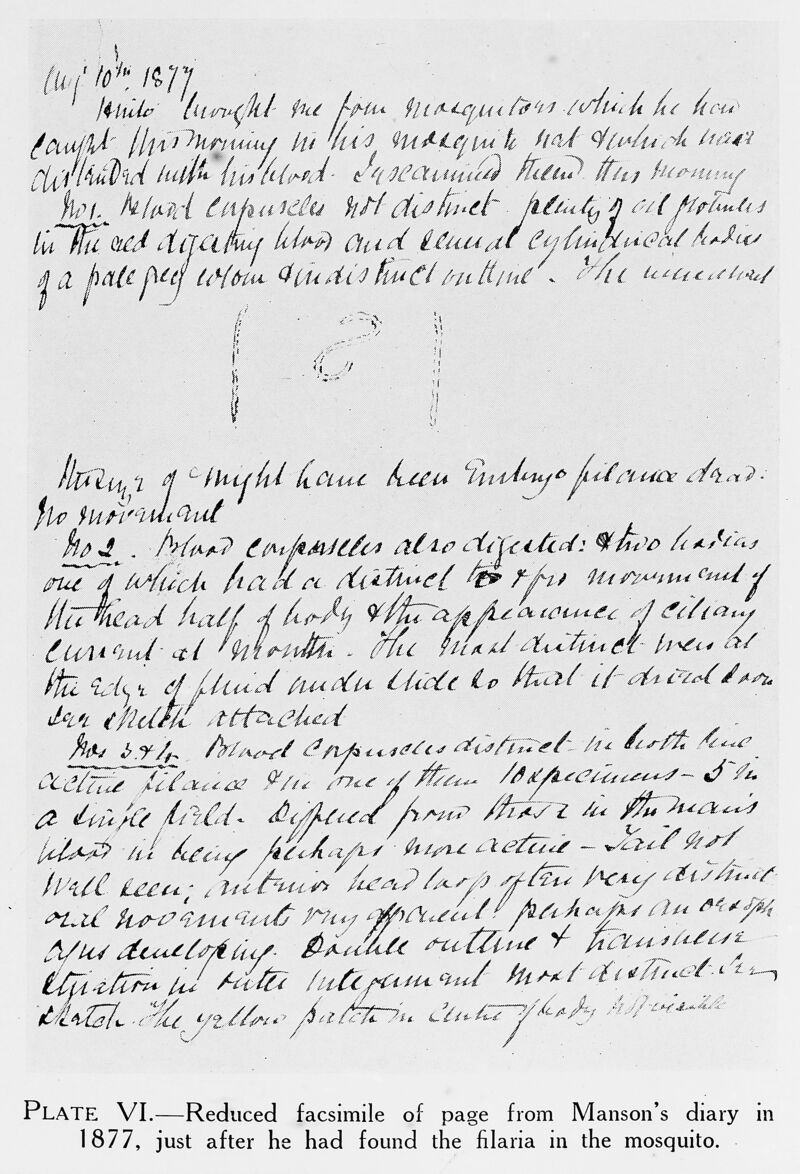 Aug 10th, 1877
Hinlo brought me four mosquitoes which he had
caught this morning in his mosquito net & which were
distended with his blood. I examined them this morning
No 1. Blood corpuscles not distinct plenty of oil globules
in the red digesting blood and several cylindrical bodies
of a pale grey colour & indistinct outline. The
might have been Embryo filariae dead.
No movement
No 2. Blood corpuscles also digested: & two bodies
one of which had a distinct to & fro movement of
the head half of body & the appearance of ciliary
current at mouth. The most distinct were at
the edge of fluid under slide so that it dried soon
see sketch attached
Nos 3 & 4. Blood corpuscles distinct in both live
active filariae & in one of them 10 specimens – 5 in
a single field. Differed from those in the man's
blood in being perhaps more active – Tail not
well seen; anterior head loop often very distinct
oral movements very apparent. perhaps an oesoph
agus developing. Double outline & transverse
striation in outer integument most distinct. See
sketch. The yellow patch in centre of body not visible
PLATE VI.—Reduced facsimile of page from Manson's diary in
1877, just after he had found the filaria in the mosquito.